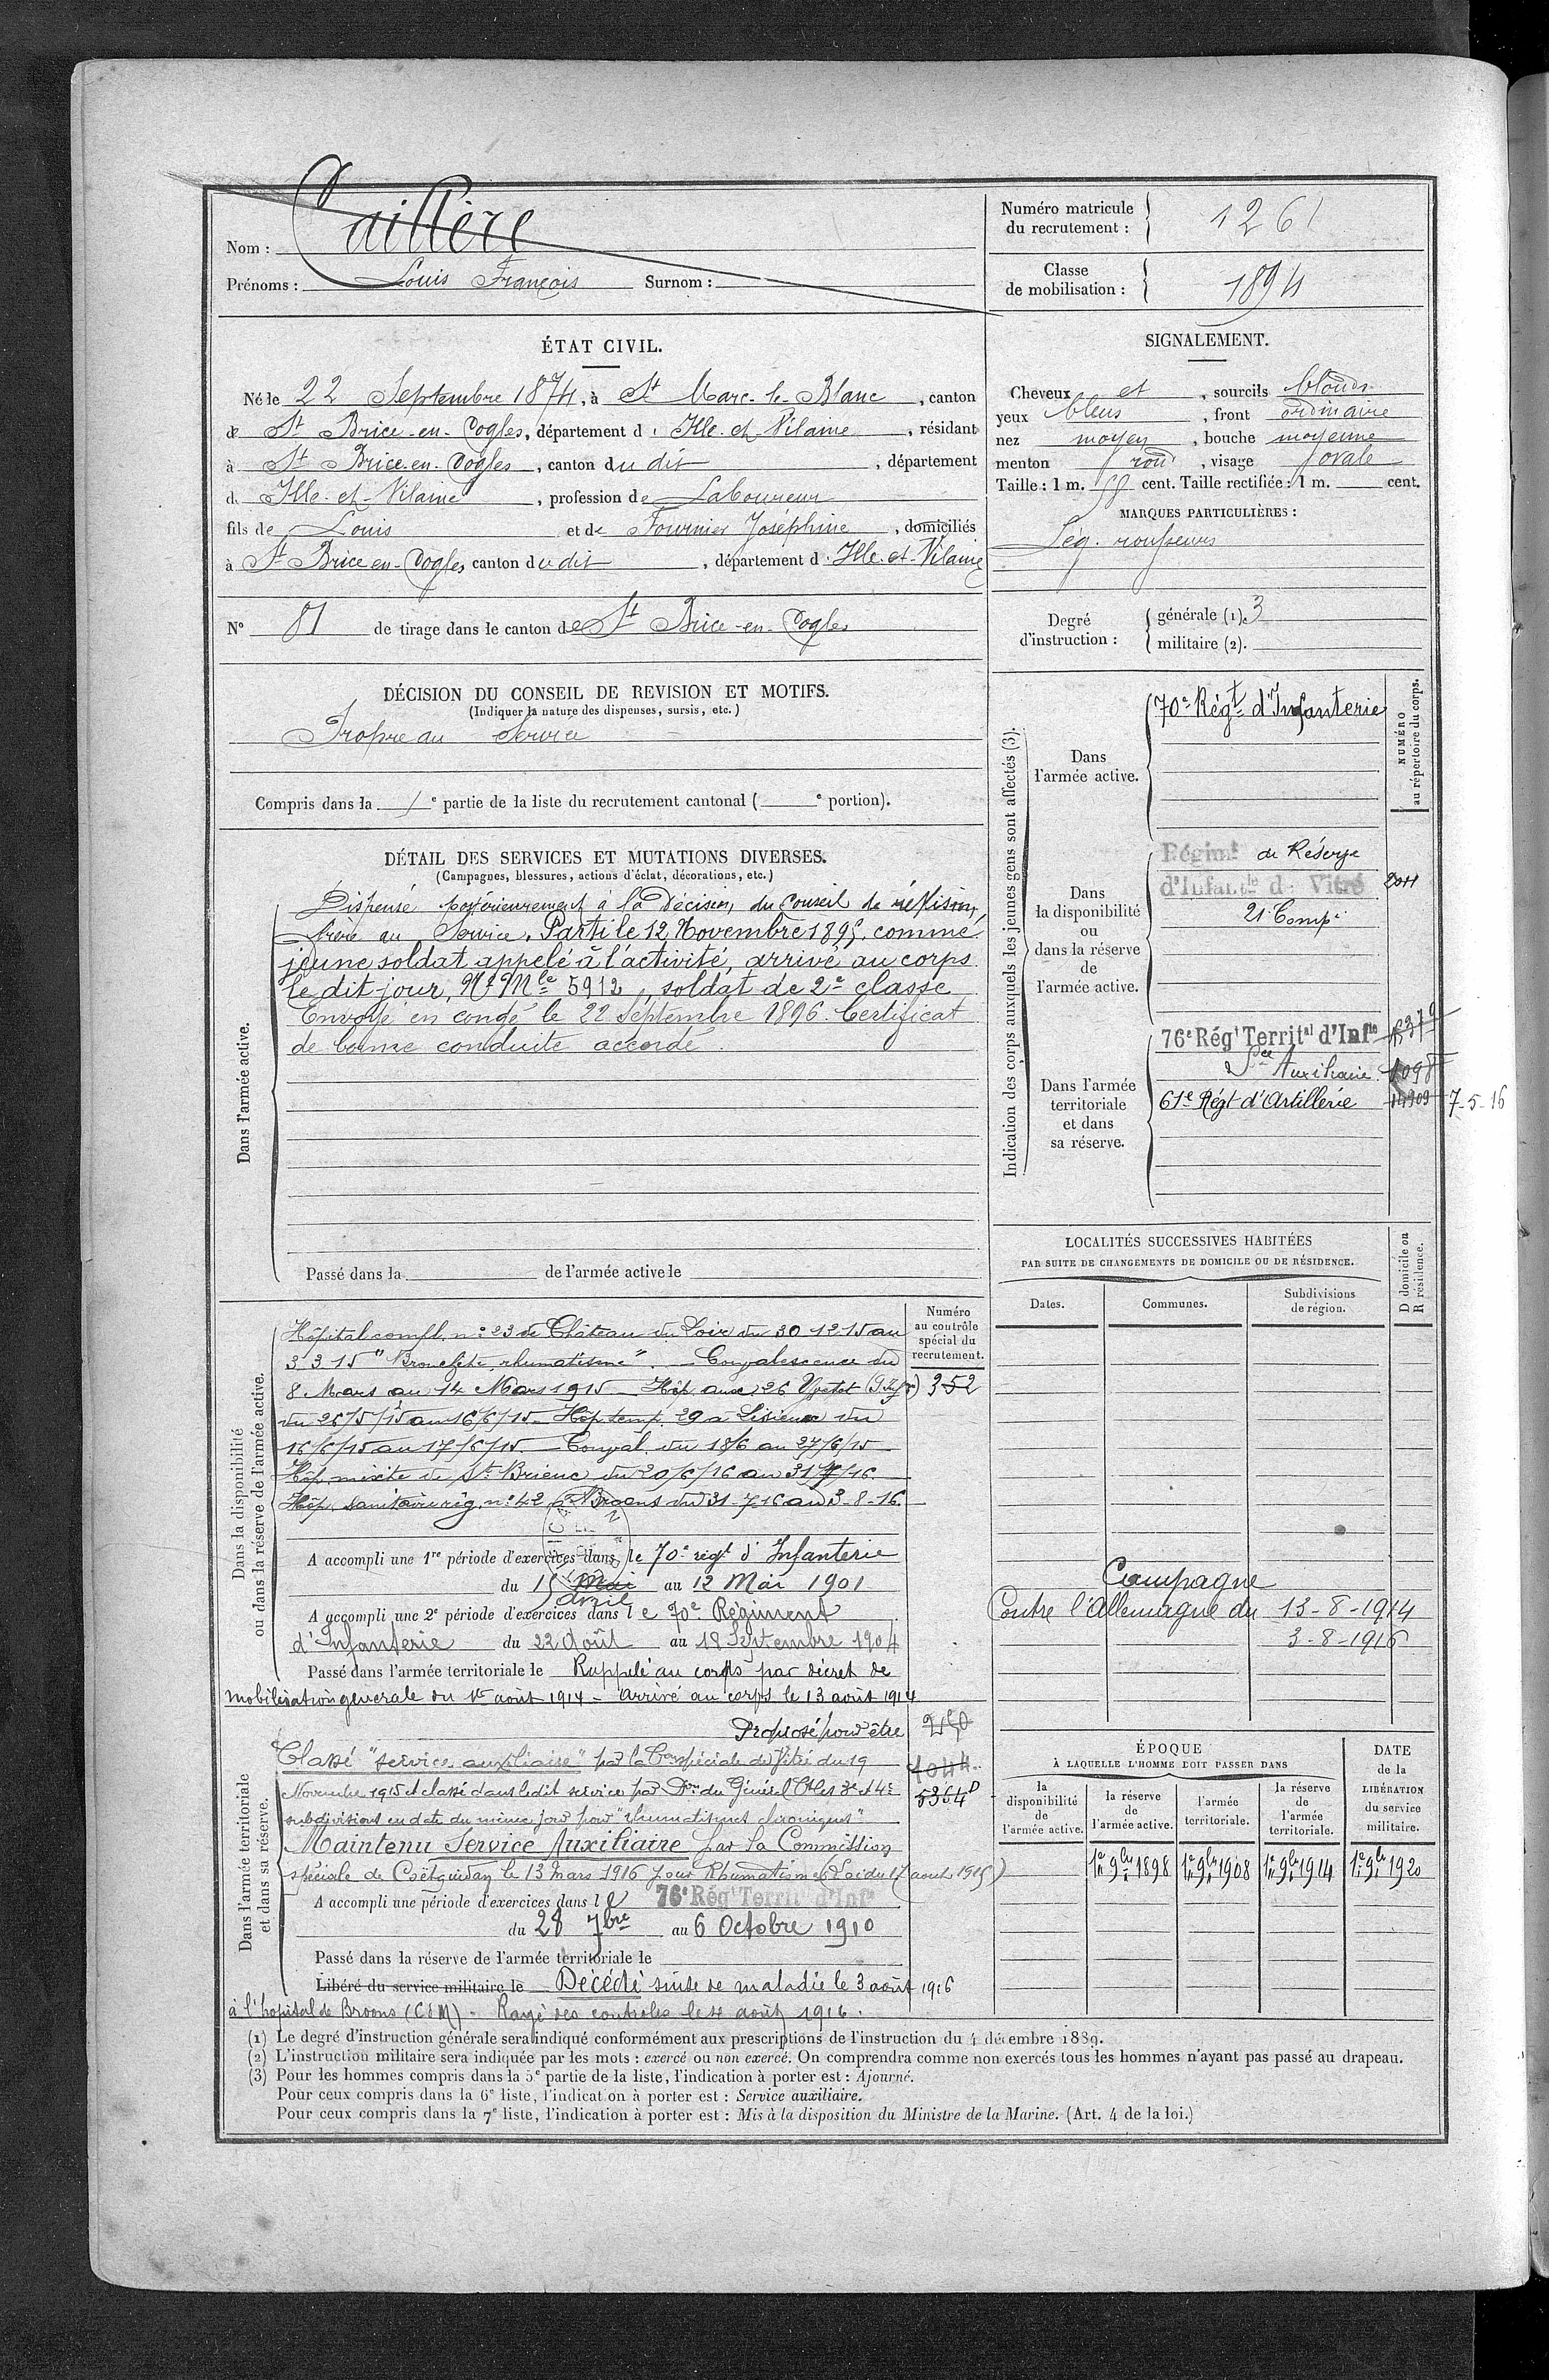 Nom : Caillère
Prénoms : Louis François Surnom :
Numéro matricule du recrutement : 1261
Classe de mobilisation : 1894
ÉTAT CIVIL.
Né le 22 Septembre 1874, à St Marc-le-Blanc, canton
de St Brice-en-Cogles, département d'Ille-et-Vilaine, résidant
à St Brice-en-Cogles, canton du dit, département
d'Ille-et-Vilaine, profession de Laboureur
fils de Louis et de Fournier Joséphine, domiciliés
à St Brice en-Cogles, canton du dit, département d'Ille-et-Vilaine
N° 81 de tirage dans le canton de St Brice-en-Cogles
SIGNALEMENT.
Cheveux et, sourcils blonds
yeux bleus, front ordinaire
nez moyen, bouche moyenne
menton rond, visage ovale
Taille : 1 m. 58 cent. Taille rectifiée : 1 m. cent.
MARQUES PARTICULIÈRES :
Lég. rousseurs
Degré d'instruction : générale (1). 3
militaire (2).
DÉCISION DU CONSEIL DE REVISION ET MOTIFS.
(Indiquer la nature des dispenses, sursis, etc.)
Propre au Service
Compris dans la 1e partie de la liste du recrutement cantonal ( e portion).
DÉTAIL DES SERVICES ET MUTATIONS DIVERSES.
(Campagnes, blessures, actions d'éclat, décorations, etc.)
Dans l'armée active.
Dispensé postérieurement à la Décision du Conseil de révision,
frère au Service. Parti le 12 Novembre 1895, comme
jeune soldat appelé à l'activité, arrivé au corps
le dit jour, N° Mle 5912, soldat de 2e classe
Envoyé en congé le 22 Septembre 1896. Certificat
de bonne conduite accordé.
Passé dans la de l'armée active le
Indication des corps auxquels les jeunes gens sont affectés (3).
NUMÉRO au répertoire du corps.
Dans l'armée active.
70e Régt d'Infanterie
Dans la disponibilité ou dans la réserve de l'armée active.
Régimt de Réserve
d'Infantie de Vitré 2011
21e Compie
Dans l'armée territoriale et dans sa réserve.
76e Régt Territal d'Infie
Sce Auxiliaire
61e Régt d'Artillerie 14909 7-5-16
LOCALITÉS SUCCESSIVES HABITÉES
PAR SUITE DE CHANGEMENTS DE DOMICILE OU DE RÉSIDENCE.
D domicile ou R résidence.
Dates. Communes. Subdivisions de région.
Campagne
Contre l'Allemagne du 13-8-1914
3-8-1916
Dans la disponibilité ou dans la réserve de l'armée active.
Numéro au contrôle spécial du recrutement.
Hôpital compl. n° 23 de Château du Loir du 30 12 15 au
3 3 15 "Bronchite, rhumatisme". Convalescence du
8 Mars au 14 Mars 1915 – Hôp. aux. 26 Yvetot (S. Infre) 352
du 26/5/15 au 16/6/15 – Hôp. temp. 29 à Lisieux du
16/6/15 au 17/6/15. – Conval. du 18/6 au 27/6/15
Hôp. mixte de St Brieuc du 20/6/16 au 31/7/16
Hôp. sanitaire rég. n° 42 à Broons du 31-7-16 au 3-8-16.
A accompli une 1re période d'exercices dans le 70e régt d'Infanterie
du 15 Mai avril au 12 Mai 1901
A accompli une 2e période d'exercices dans le 70e Régiment
d'Infanterie du 22 Août au 18 Septembre 1904
Passé dans l'armée territoriale le Rappelé au corps par décret de
mobilisation générale du 1er août 1914 – arrivé au corps le 13 août 1914
Dans l'armée territoriale et dans sa réserve.
Proposé pour être
Classé "service auxiliaire" par la Con spéciale de Vitré du 19 4044
Novembre 1915 et classé dans ledit service par Don du Général Ct les 3e et 4e 5364D
subdivisions en date du même jour pour "rhumatismes chroniques"
Maintenu Service Auxiliaire par la Commission
spéciale de Coëtquidan le 13 Mars 1916 pour Rhumatismes (Loi du 17 août 1915)
A accompli une période d'exercices dans le 76e Régt Territ d'Infie
du 28 7bre au 6 Octobre 1910
Passé dans la réserve de l'armée territoriale le
Libéré du service militaire le Décédé suite de maladie le 3 août 1916
à l'hôpital de Broons (CdN) – Rayé des contrôles le 4 août 1916.
ÉPOQUE
À LAQUELLE L'HOMME DOIT PASSER DANS
la disponibilité de l'armée active. la réserve de l'armée active. l'armée territoriale. la réserve de l'armée territoriale.
DATE de la LIBÉRATION du service militaire.
1er 9bre 1898 1er 9bre 1908 1er 9bre 1914 1er 9bre 1920
(1) Le degré d'instruction générale sera indiqué conformément aux prescriptions de l'instruction du 4 décembre 1889.
(2) L'instruction militaire sera indiquée par les mots : exercé ou non exercé. On comprendra comme non exercés tous les hommes n'ayant pas passé au drapeau.
(3) Pour les hommes compris dans la 5e partie de la liste, l'indication à porter est : Ajourné.
Pour ceux compris dans la 6e liste, l'indication à porter est : Service auxiliaire.
Pour ceux compris dans la 7e liste, l'indication à porter est : Mis à la disposition du Ministre de la Marine. (Art. 4 de la loi.)